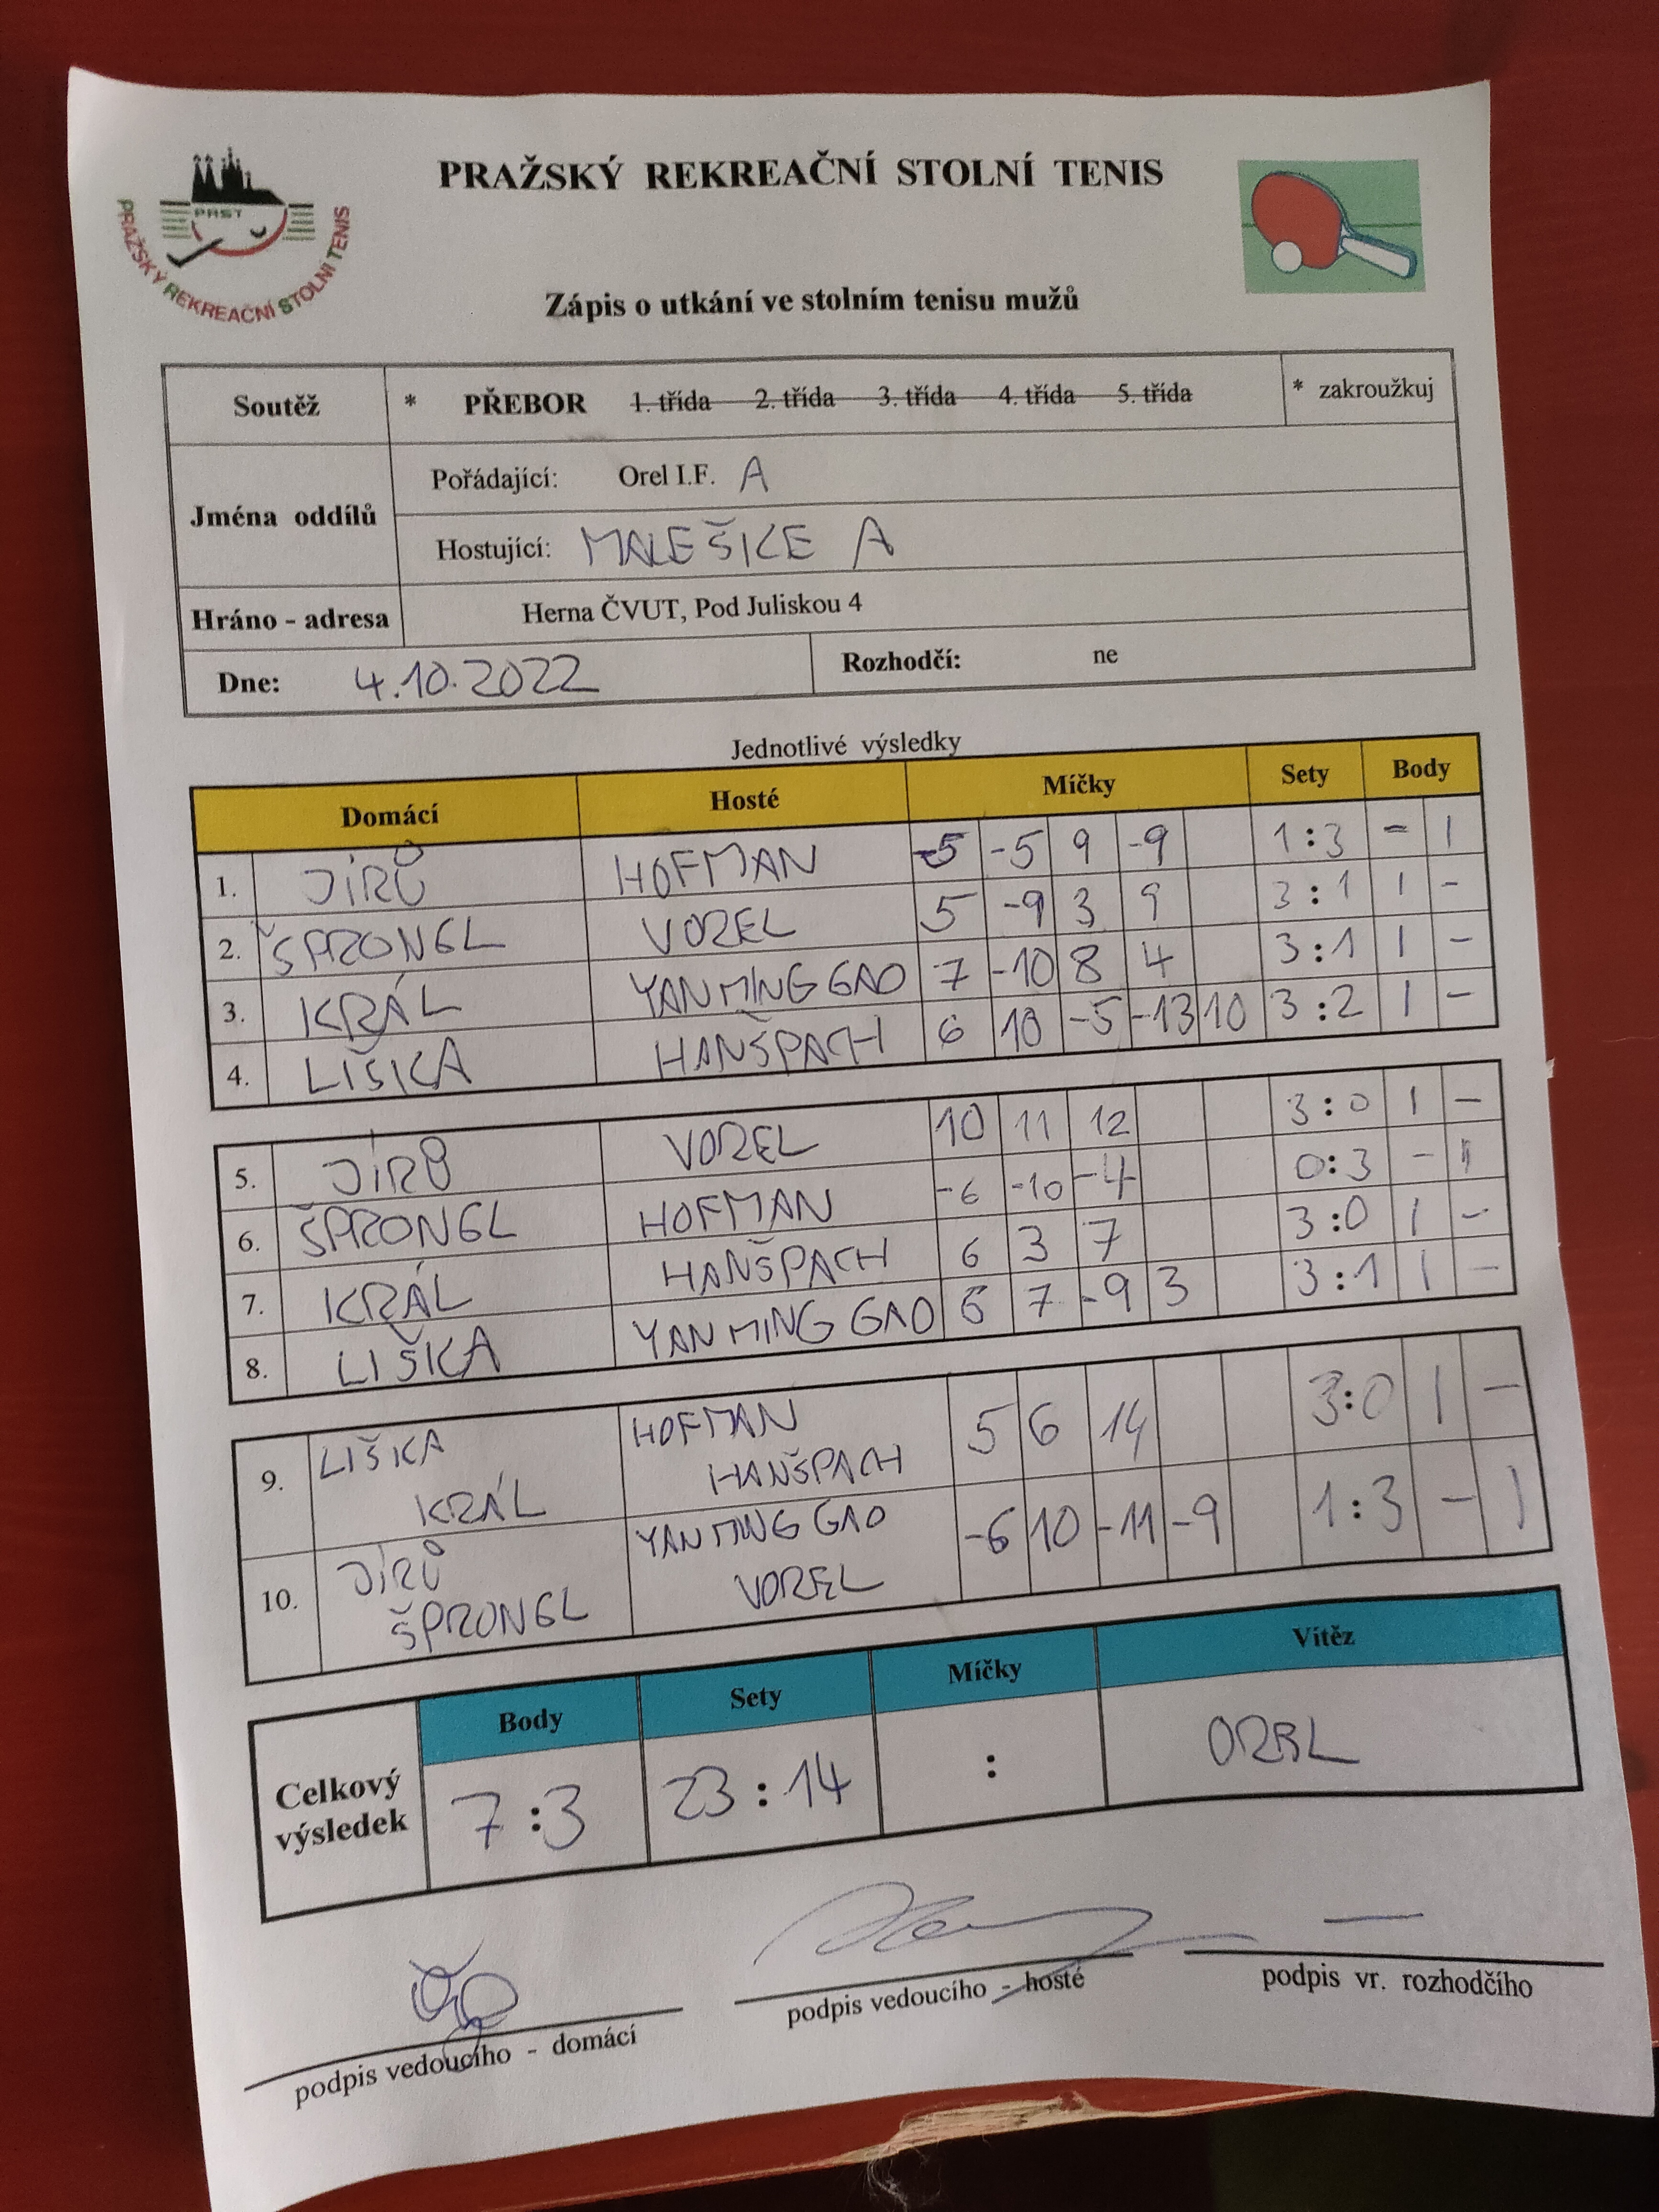 PRAŽSKÝ REKREAČNÍ STOLNÍ TENIS
PRST
PRAŽSKÝ REKREAČNÍ STOLNÍ TENIS
Zápis o utkání ve stolním tenisu mužů
Soutěž * PŘEBOR 1. třída 2. třída 3. třída 4. třída 5. třída * zakroužkuj
Jména oddílů
Pořádající: Orel I.F. A
Hostující: MALEŠICE A
Hráno - adresa Herna ČVUT, Pod Juliskou 4
Dne: 4.10.2022 Rozhodčí: ne
Jednotlivé výsledky
Domácí Hosté Míčky Sety Body
1. JÍRŮ HOFMAN -5 -5 9 -9 1:3 - 1
2. ŠPRONGL VOREL 5 -9 3 9 3:1 1 -
3. KRÁL YANMING GAO 7 -10 8 4 3:1 1 -
4. LIŠKA HANŠPACH 6 10 -5 -13 10 3:2 1 -
5. JÍRŮ VOREL 10 11 12 3:0 1 -
6. ŠPRONGL HOFMAN -6 -10 -4 0:3 - 1
7. KRÁL HANŠPACH 6 3 7 3:0 1 -
8. LIŠKA YANMING GAO 6 7 -9 3 3:1 1 -
9. LIŠKA KRÁL HOFMAN HANŠPACH 5 6 14 3:0 1 -
10. JÍRŮ ŠPRONGL YANMING GAO VOREL -6 10 -11 -9 1:3 - 1
Body Sety Míčky Vítěz
Celkový výsledek 7:3 23:14 : OREL
podpis vedoucího - domácí
podpis vedoucího - hosté
podpis vr. rozhodčího